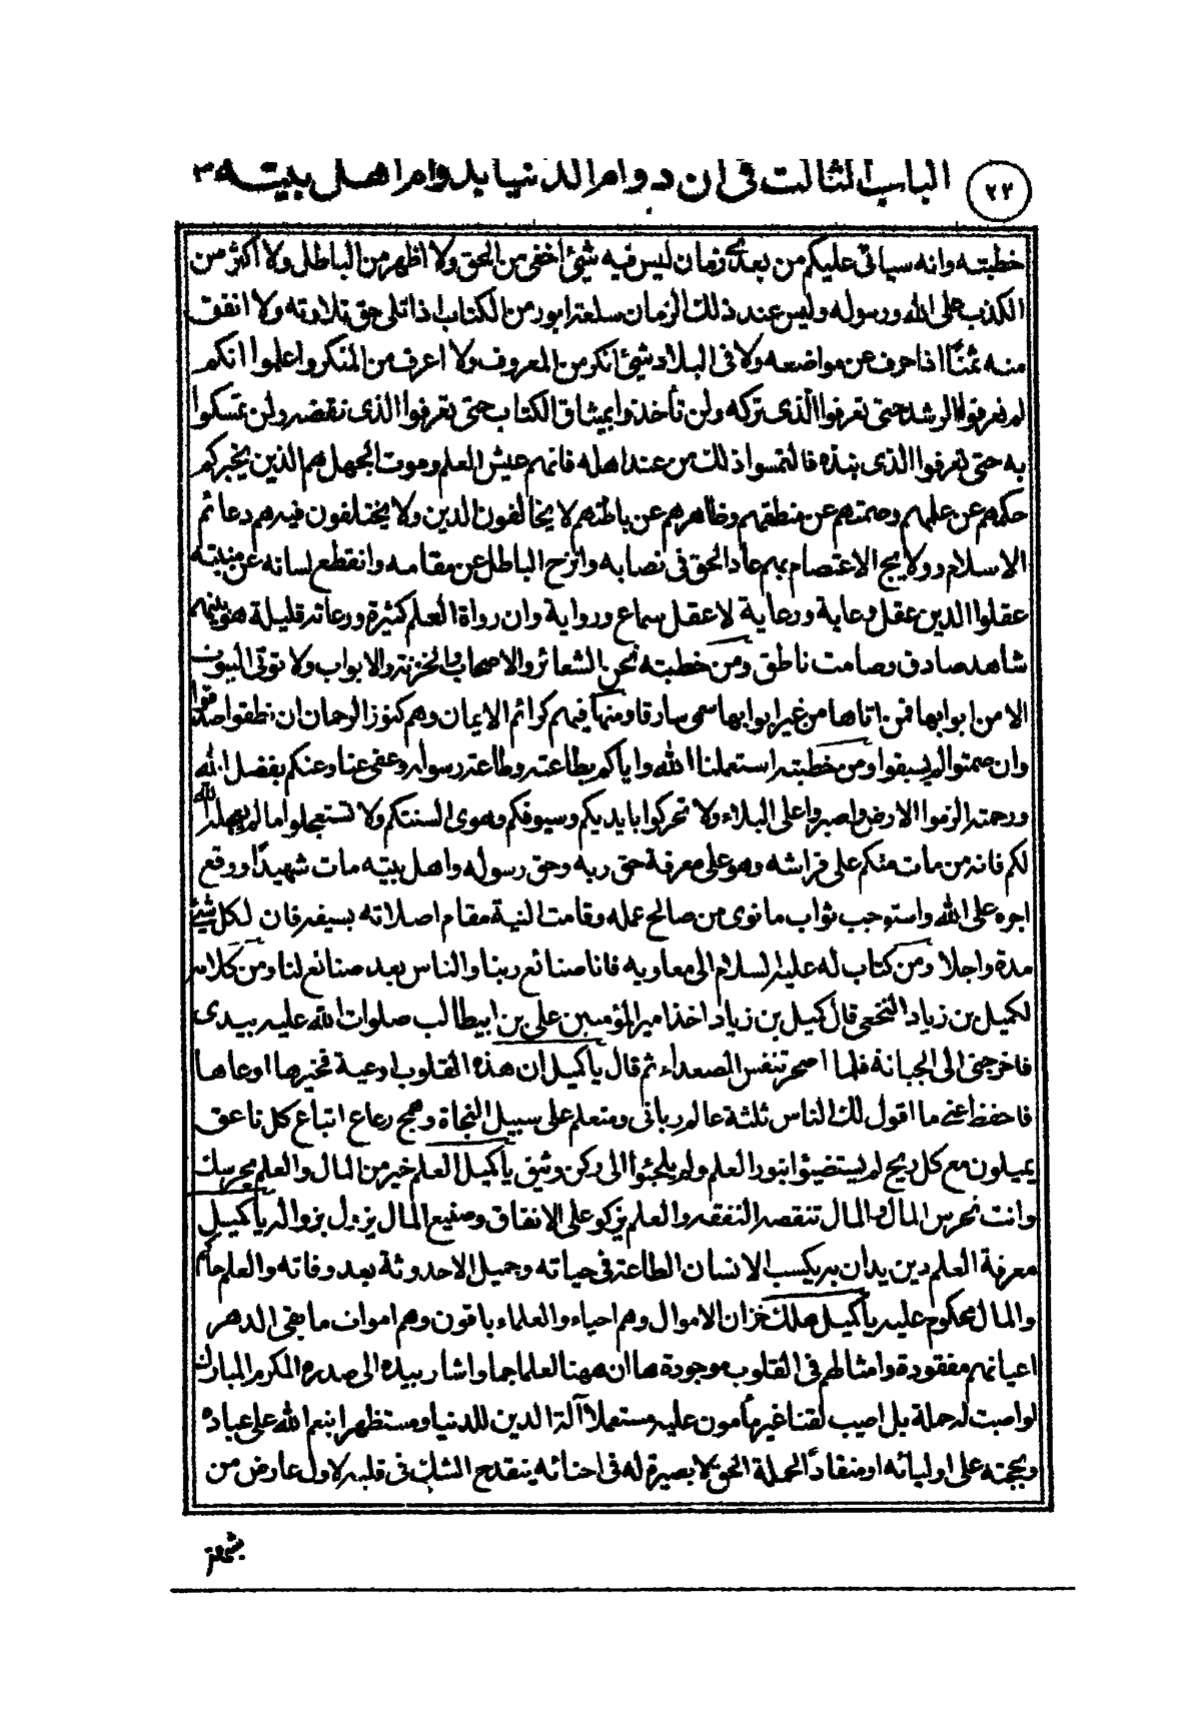 ٢٢
الباب الثالث فى ان دوام الدنيا بدوام اهل بيته ص
خطبته وانه سياتى عليكم من بعدى زمان ليس فيه شئ أخفى من الحق ولا اظهر من الباطل ولا اكثر من
الكذب على الله ورسوله وليس عند ذلك الزمان سلعة ابور من الكتاب اذا تلى حق تلاوته ولا انفق
منه ثمنًا اذا حرف عن مواضعه ولا فى البلاد شئ انكر من المعروف ولا اعرف من المنكر واعلموا انكم
لم تعرفوا الرشد حتى تعرفوا الذى تركه ولن تأخذوا بميثاق الكتاب حتى تعرفوا الذى نقضه ولن تمسكوا
به حتى تعرفوا الذى نبذه فالتمسوا ذلك من عند اهله فانهم عيش العلم وموت الجهل هم الذين يخبركم
حكمهم عن علمهم وصمتهم عن منطقهم وظاهرهم عن باطنهم لا يخالفون الدين ولا يختلفون فيه هم دعائم
الاسلام وولايج الاعتصام بهم عاد الحق فى نصابه وانزح الباطل عن مقامه وانقطع لسانه عن منبته
عقلوا الدين عقل وعاية ورعاية لا عقل سماع ورواية وان رواة العلم كثيرة ورعاته قليلة هو بينهم
شاهد صادق وصامت ناطق ومن خطبته نحن الشعائر والاصحاب والخزنة والابواب ولا تؤتى البيوت
الا من ابوابها فمن اتاها من غير ابوابها سمى سارقا ومنها فيهم كرائم الايمان وهم كنوز الرحمان ان نطقوا صدقوا
وان صمتوا لم يسبقوا ومن خطبته استعملنا الله واياكم بطاعته وطاعة رسوله وعفى عنا وعنكم بفضل الله
ورحمته الزموا الارض واصبروا على البلاء ولا تحركوا بايديكم وسيوفكم وهوى السنتكم ولا تستعجلوا ما لم يعجله الله
لكم فانه من مات منكم على فراشه وهو على معرفة حق ربه وحق رسوله واهل بيته مات شهيدًا ووقع
اجره على الله واستوجب ثواب ما نوى من صالح عمله وقامت النية مقام اصلاته بسيفه فان لكل شئ
مدة واجلا ومن كتاب له عليه السلام الى معاويه فانا صنائع ربنا والناس بعد صنائع لنا ومن كلامه
لكميل بن زياد النخعى قال كميل بن زياد اخذ امير المؤمنين على بن ابيطالب صلوات الله عليه بيدى
فاخرجنى الى الجبانة فلما اصحر تنفس الصعداء ثم قال يا كميل ان هذه القلوب اوعية فخيرها اوعاها
فاحفظ عنى ما اقول لك الناس ثلثة عالم ربانى ومتعلم على سبيل النجاة وهمج رعاع اتباع كل ناعق
يميلون مع كل ريح لم يستضيئوا بنور العلم ولم يلجئوا الى ركن وثيق يا كميل العلم خير من المال والعلم يحرسك
وانت تحرس المال والمال تنقصه النفقه والعلم يزكو على الانفاق وصنيع المال يزول بزواله يا كميل
معرفة العلم دين يدان به يكسب الانسان الطاعة فى حياته وجميل الاحدوثة بعد وفاته والعلم حاكم
والمال محكوم عليه يا كميل هلك خزان الاموال وهم احياء والعلماء باقون وهم اموات ما بقى الدهر
اعيانهم مفقودة وامثالهم فى القلوب موجودة ها ان ههنا لعلما جما واشار بيده الى صدره المكرم المبارك
لو اصبت له حملة بل اصيب لقنا غير مأمون عليه مستعملا آلة الدين للدنيا ومستظهرا بنعم الله على عباده
وبحججه على اوليائه او منقادًا لحملة الحق لا بصيرة له فى احنائه ينقدح الشك فى قلبه لاول عارض من
شبهة